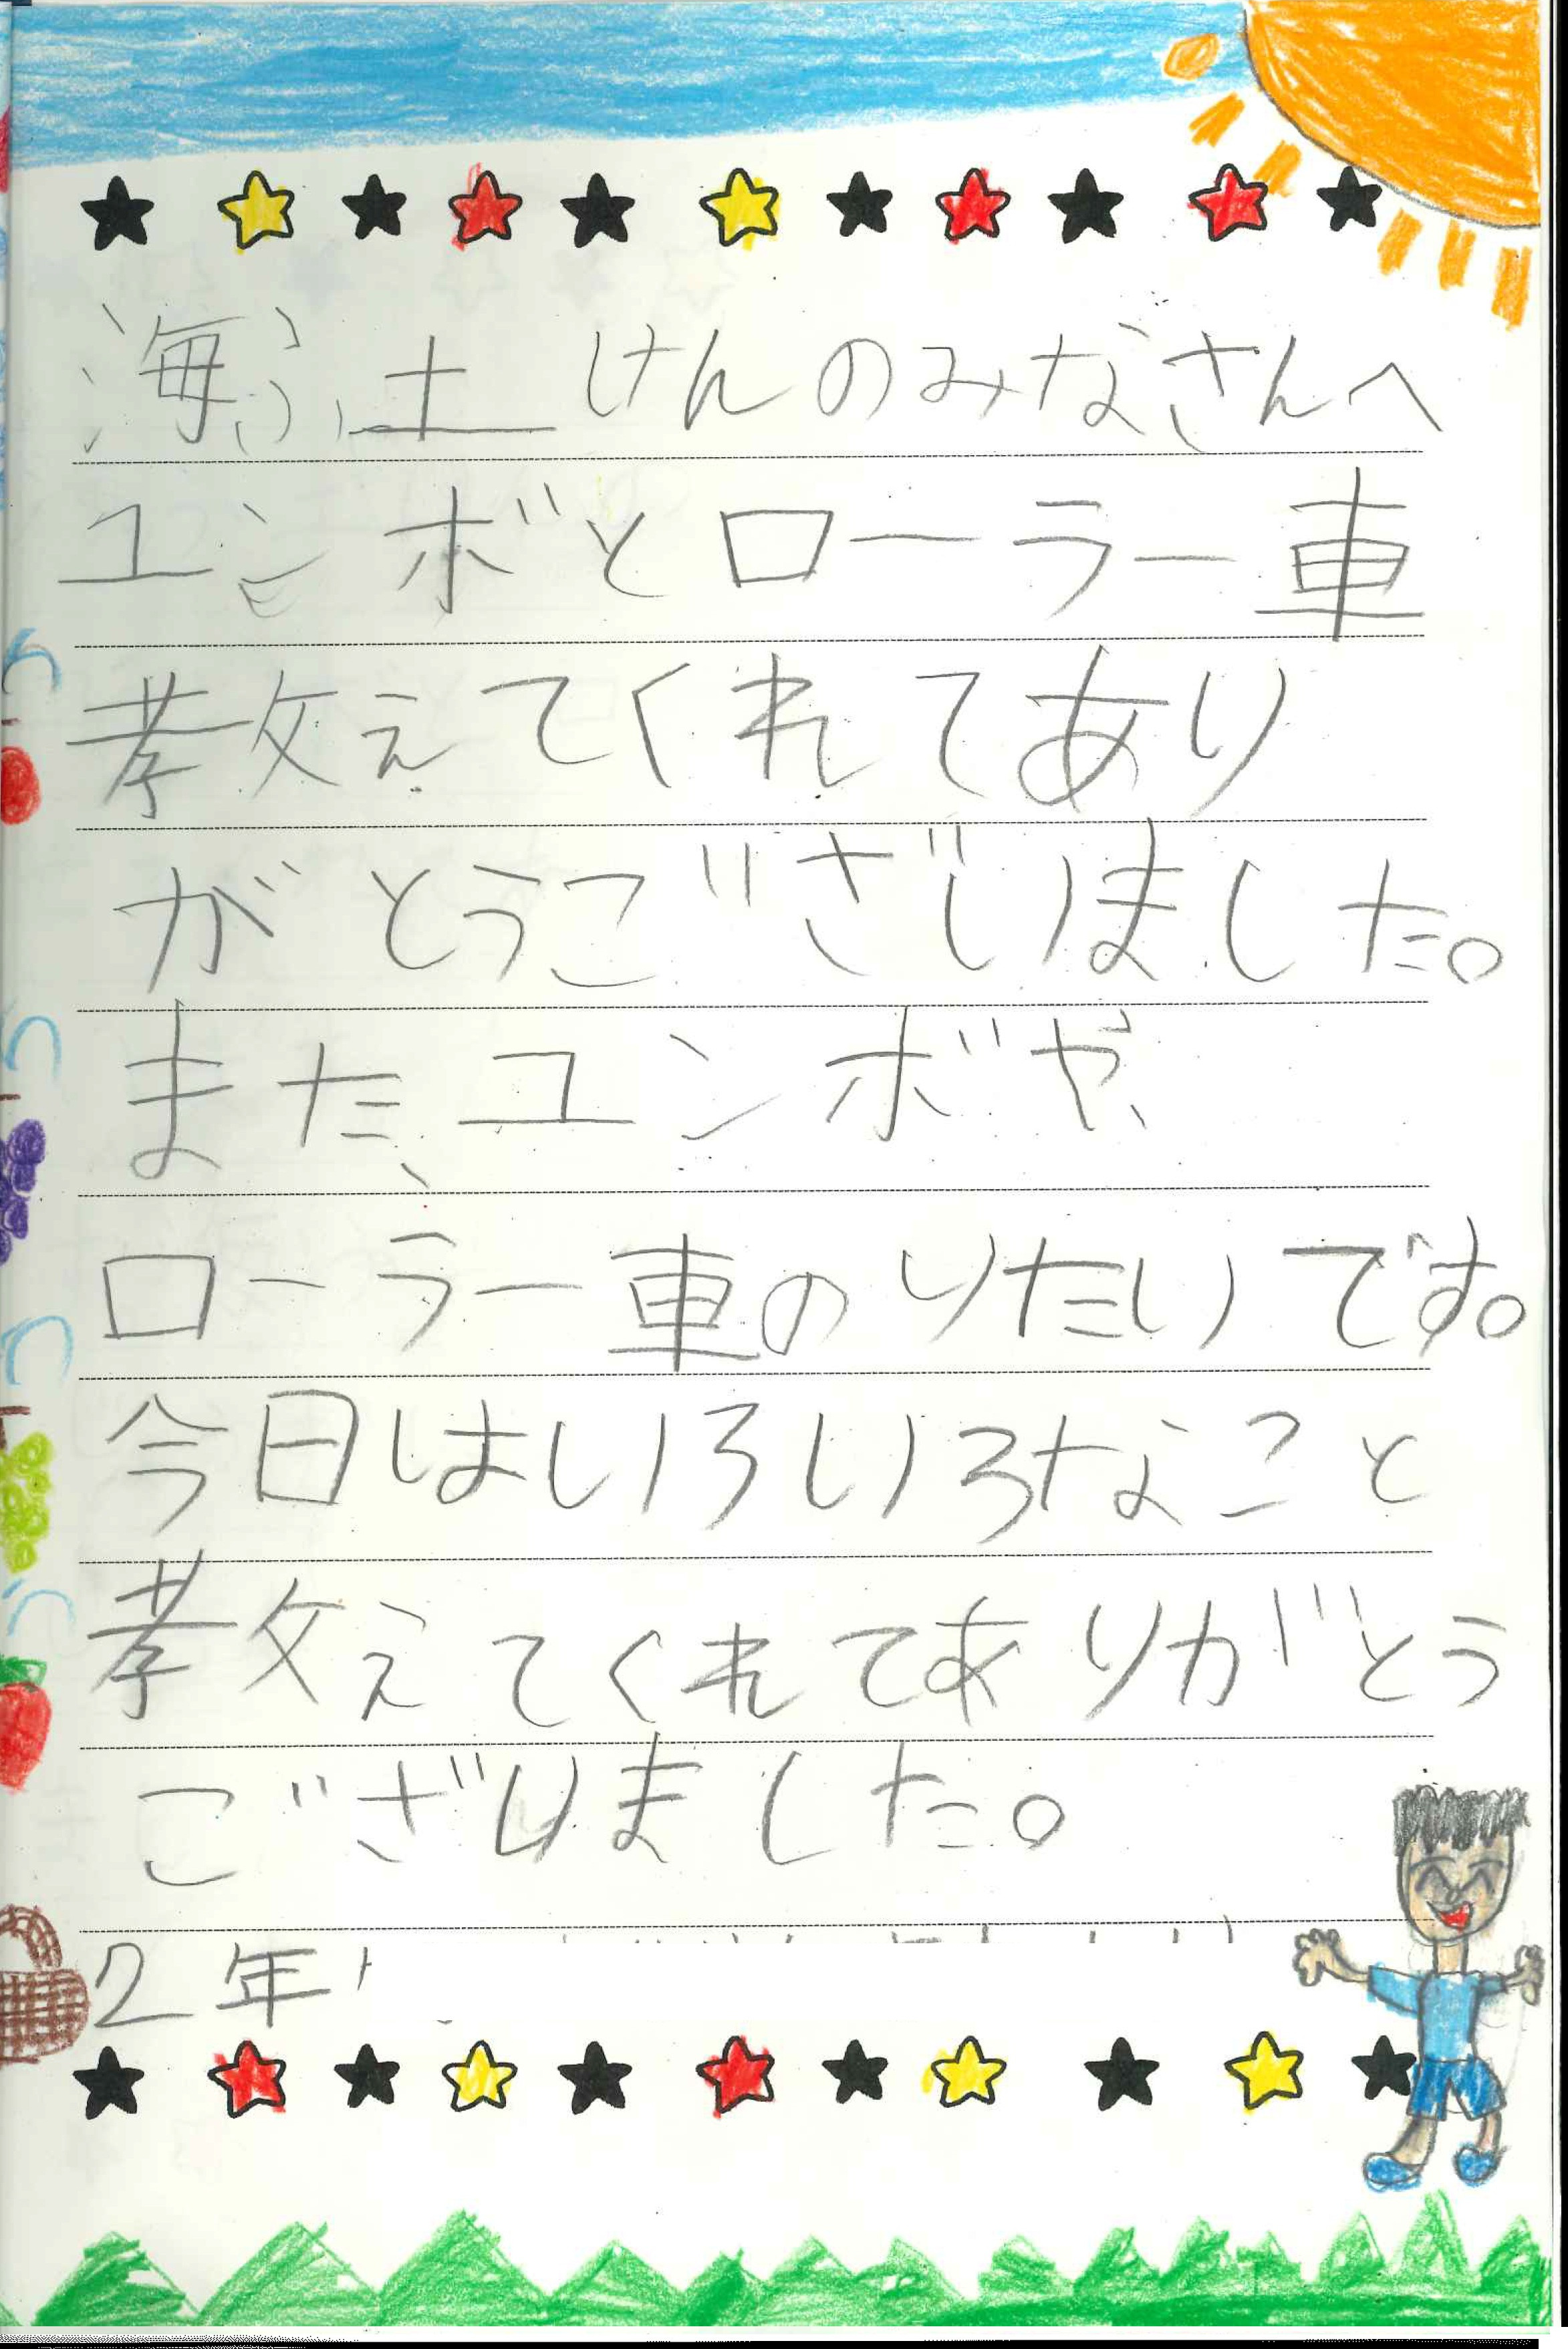 海ふ土けんのみなさんへ
ユンボとローラー車
教えてくれてあり
がとうございました。
また、ユンボや、
ローラー車のりたいです。
今日はいろいろなこと
教えてくれてありがとう
ございました。
2年